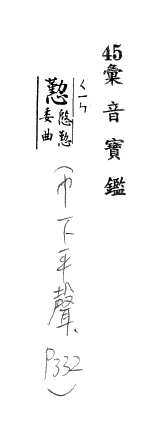 45彙音寶鑑
ㄑㄧㄣ
懃 慇懃
委曲
(巾下平聲、P332)